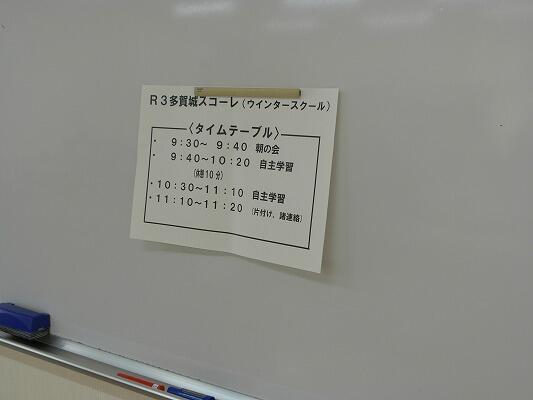 R3多賀城スコーレ(ウインタースクール)
〈タイムテーブル〉
・ 9:30~ 9:40 朝の会
・ 9:40~10:20 自主学習
(休憩10分)
・10:30~11:10 自主学習
・11:10~11:20 (片付け, 諸連絡)